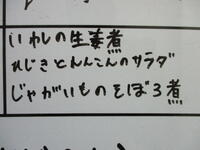 いわしの生姜煮
ひじきとれんこんのサラダ
じゃがいものそぼろ煮